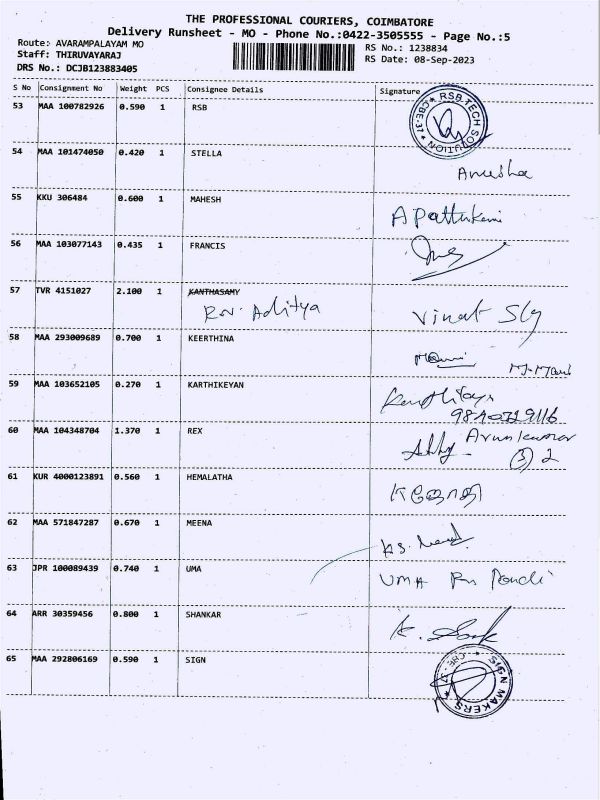 THE PROFESSIONAL COURIERS, COIMBATORE
Delivery Runsheet - MO - Phone No.:0422-3505555 - Page No.:5
Route: AVARAMPALAYAM MO RS No.: 1238834
Staff: THIRUVAYARAJ RS Date: 08-Sep-2023
DRS No.: DCJB123883405
S No Consignment No Weight PCS Consignee Details Signature
53 MAA 100782926 0.590 1 RSB
RSB TECH SOLUTION CBE-37
54 MAA 101474050 0.420 1 STELLA
Anusha
55 KKU 306484 0.600 1 MAHESH
A Pattukani
56 MAA 103077143 0.435 1 FRANCIS
57 TVR 4151027 2.100 1 KANTHASAMY
R.N. Aditya Vinat Sly
58 MAA 293009689 0.700 1 KEERTHINA
Mani M.Mani
59 MAA 103652105 0.270 1 KARTHIKEYAN
60 MAA 104348704 1.370 1 REX
Arunkumar
3 2
61 KUR 4000123891 0.560 1 HEMALATHA
62 MAA 571847287 0.670 1 MEENA
63 JPR 100089439 0.740 1 UMA
UMA
64 ARR 30359456 0.800 1 SHANKAR
65 MAA 292806169 0.590 1 SIGN
SIGN MAKERS CBE-37